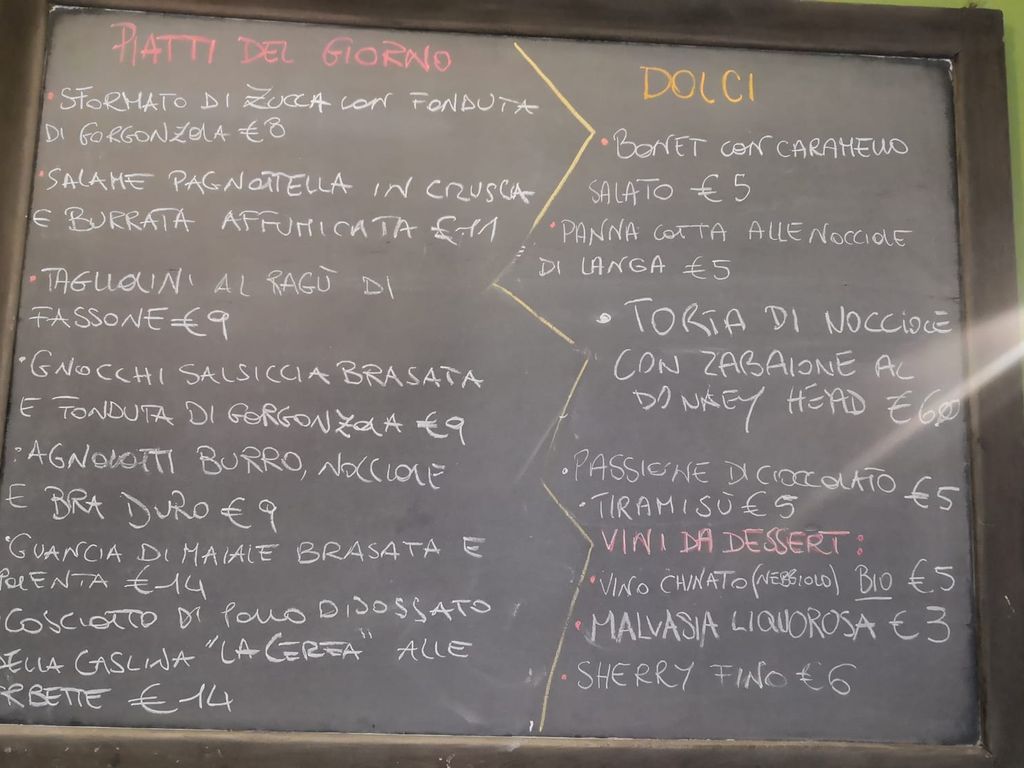 PIATTI DEL GIORNO
• SFORMATO DI ZUCCA CON FONDUTA
DI GORGONZOLA €8
• SALAME PAGNOTTELLA IN CRUSCA
E BURRATA AFFUMICATA €11
• TAGLIOLINI AL RAGÙ DI
FASSONE €9
• GNOCCHI SALSICCIA BRASATA
E FONDUTA DI GORGONZOLA €9
• AGNOLOTTI BURRO, NOCCIOLE
E BRA DURO €9
• GUANCIA DI MAIALE BRASATA E
POLENTA €14
COSCIOTTO DI POLLO DISOSSATO
DELLA CASCINA "LA CEREA" ALLE
ERBETTE €14
DOLCI
• BONET CON CARAMELLO
SALATO €5
• PANNA COTTA ALLE NOCCIOLE
DI LANGA €5
• TORTA DI NOCCIOLE
CON ZABAIONE AL
DONKEY HEAD €6
• PASSIONE DI CIOCCOLATO €5
• TIRAMISÙ €5
VINI DA DESSERT:
• VINO CHINATO (NEBBIOLO) BIO €5
• MALVASIA LIQUOROSA €3
• SHERRY FINO €6